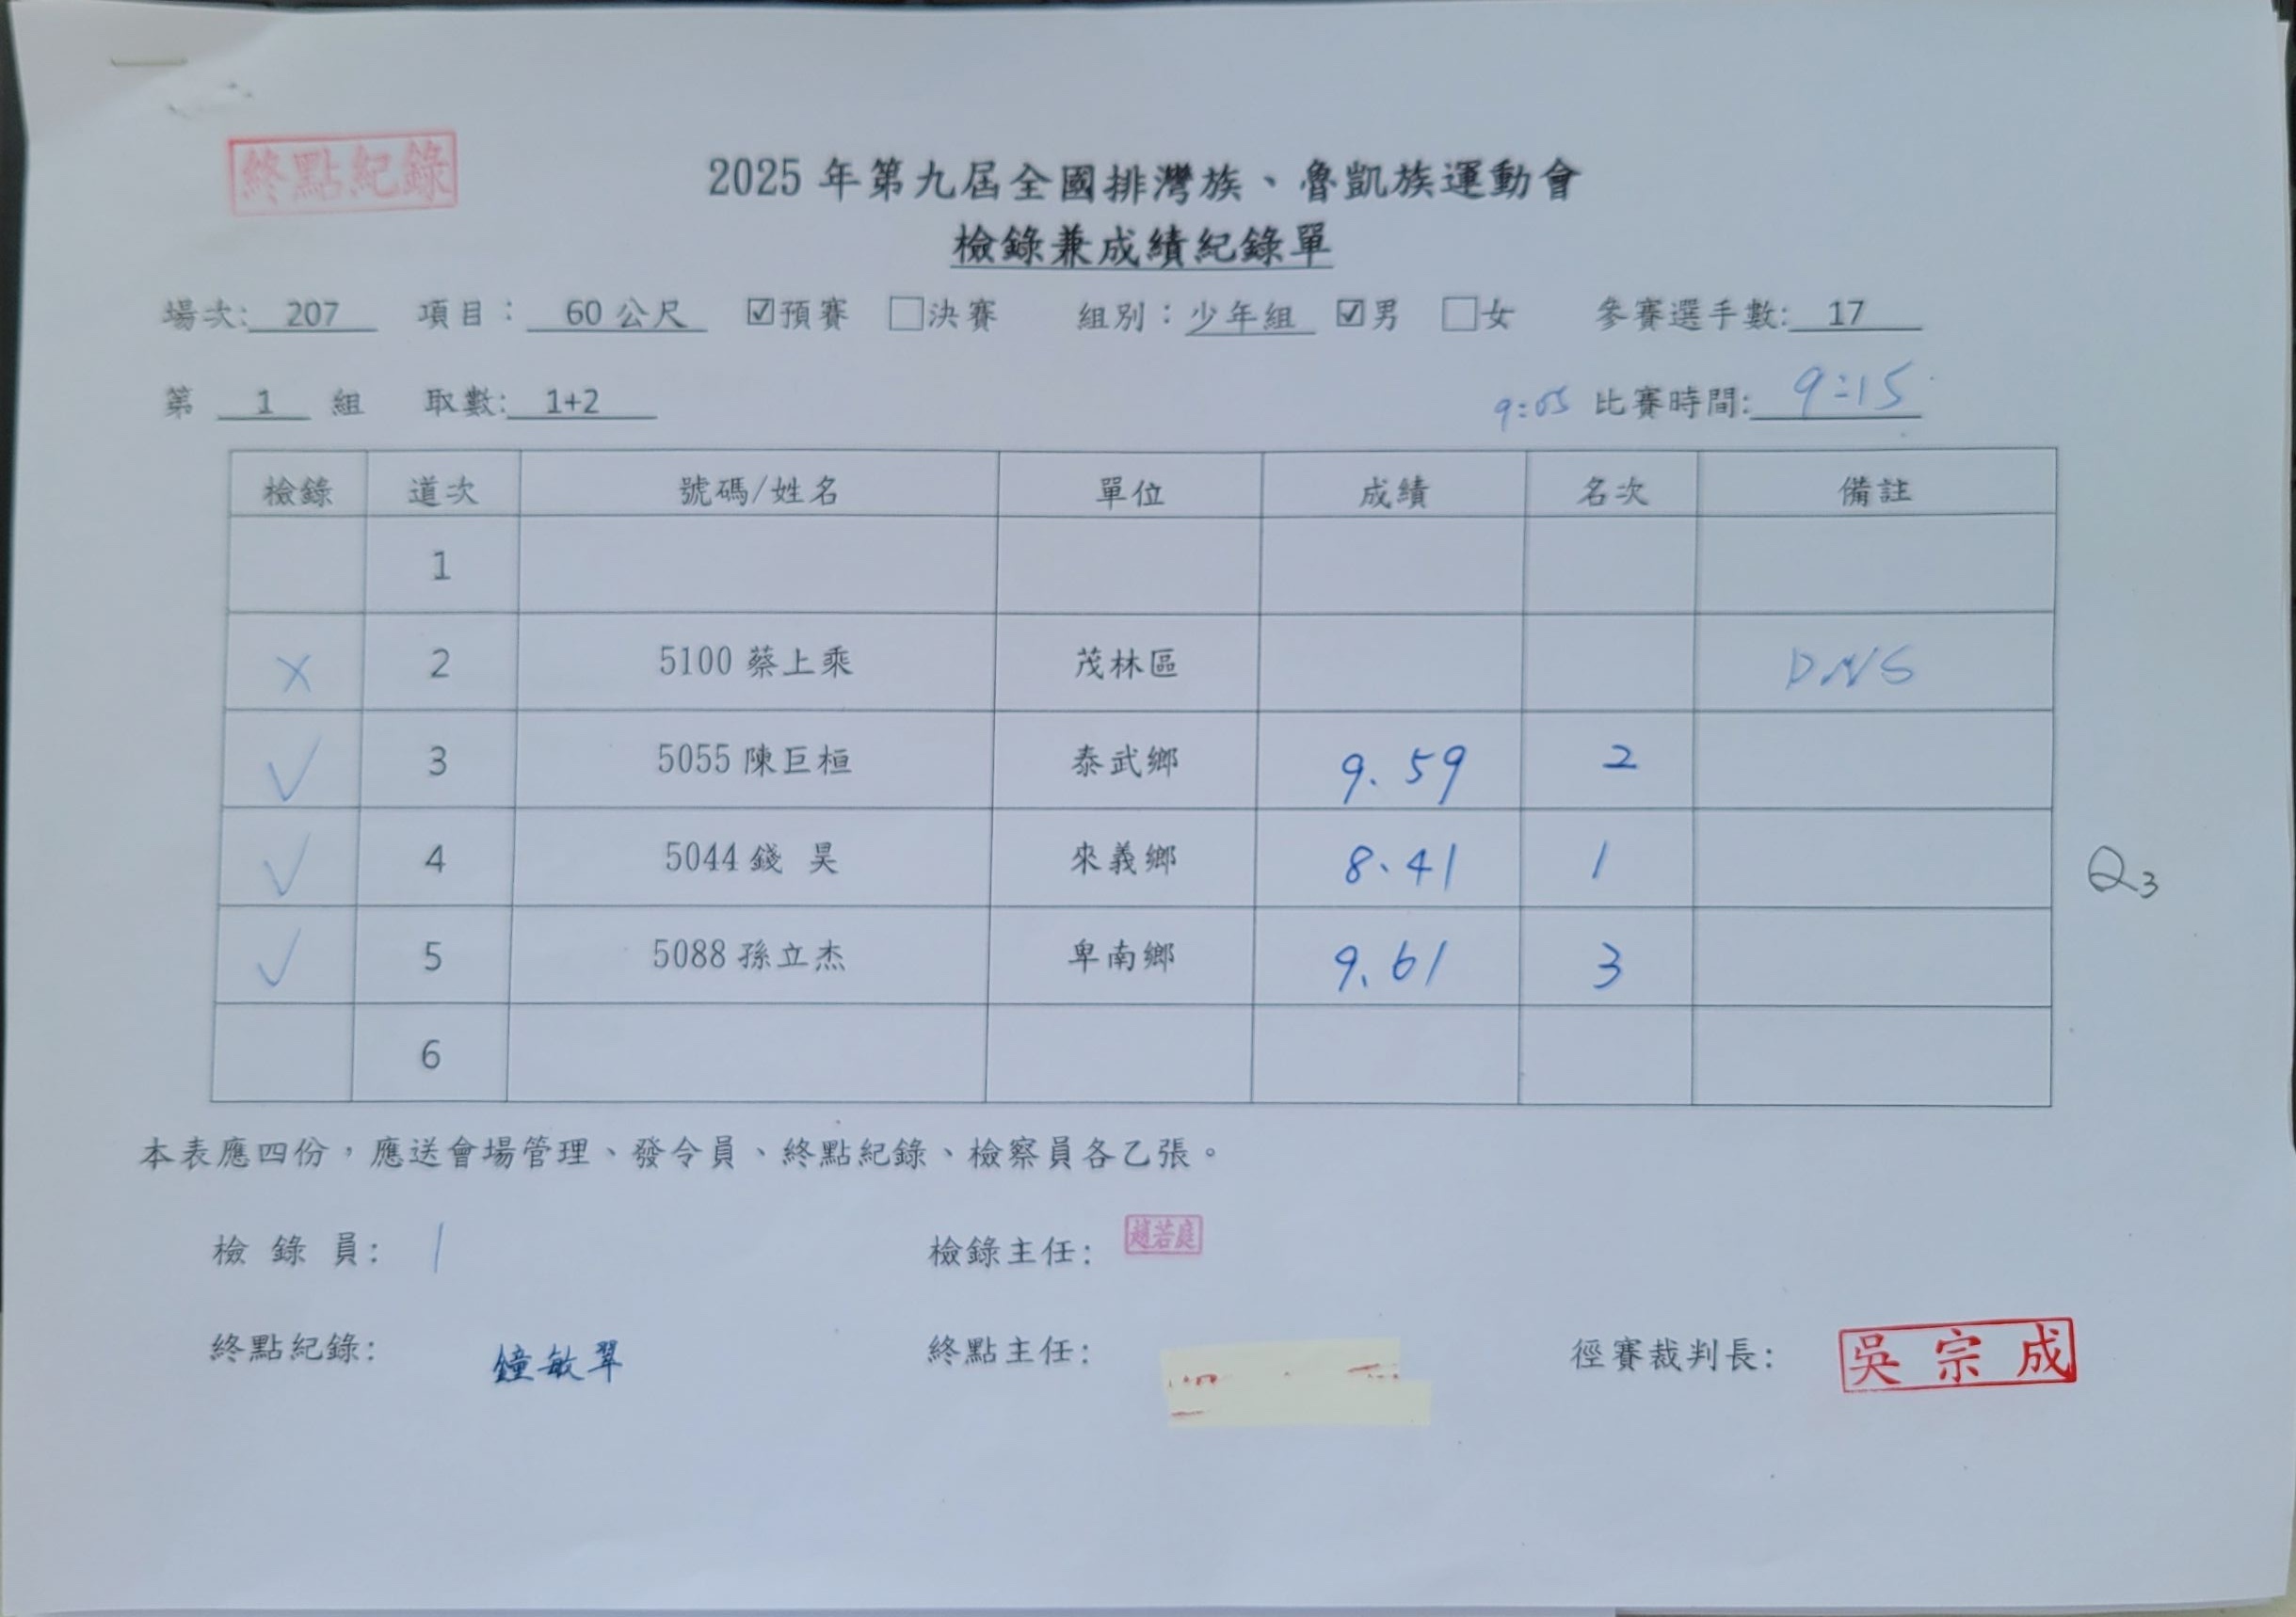 終點紀錄
2025 年第九屆全國排灣族、魯凱族運動會
檢錄兼成績紀錄單
場次: 207 項目： 60 公尺 ☑預賽 □決賽 組別：少年組 ☑男 □女 參賽選手數: 17
第 1 組 取數: 1+2 9:05 比賽時間: 9:15
檢錄 道次 號碼/姓名 單位 成績 名次 備註
1
X 2 5100 蔡上乘 茂林區 DNS
✓ 3 5055 陳巨桓 泰武鄉 9.59 2
✓ 4 5044 錢 昊 來義鄉 8.41 1 Q3
✓ 5 5088 孫立杰 卑南鄉 9.61 3
6
本表應四份，應送會場管理、發令員、終點紀錄、檢察員各乙張。
檢 錄 員: 檢錄主任: 趙若庭
終點紀錄: 鐘敏翠 終點主任: 徑賽裁判長: 吳宗成